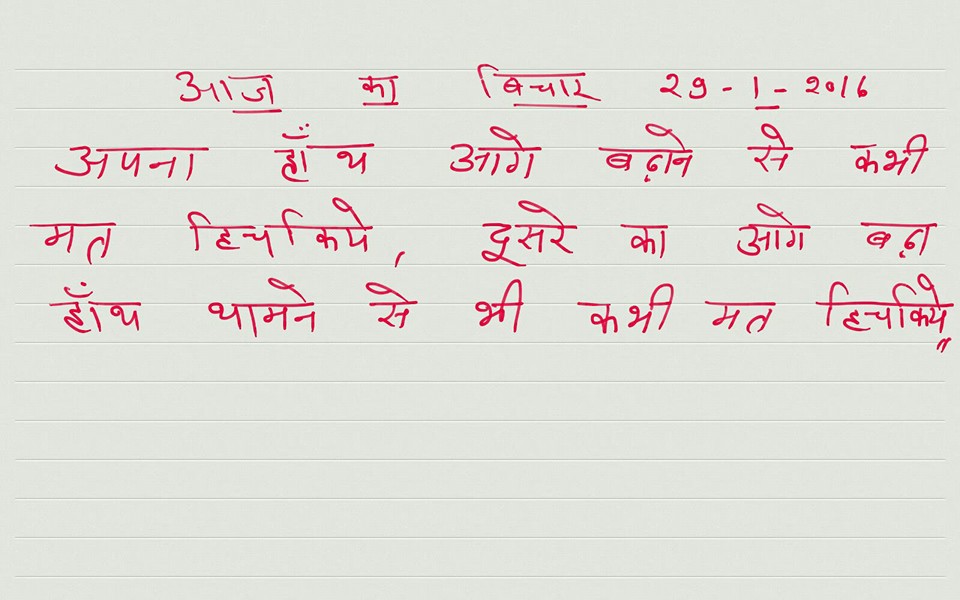 आज का बिचार 29-1-2016
अपना हाँथ आगे बढ़ाने से कभी
मत हिचकिये, दूसरे का आगे बढ़ा
हाँथ थामने से भी कभी मत हिचकिये"